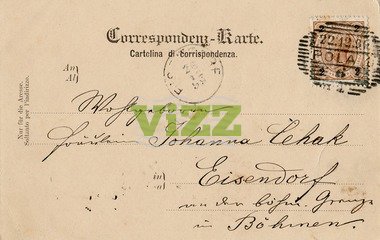 Correspondenz-Karte.
Cartolina di corrispondenza.
An
All
Nur für die Adresse.
Soltanto per l'indirizzo.
22.12.96
POLA
vizz
Wohlgeboren
Fräulein Johanna Cehak
Eisendorf
an der böhm. Grenze
in
in Böhmen.